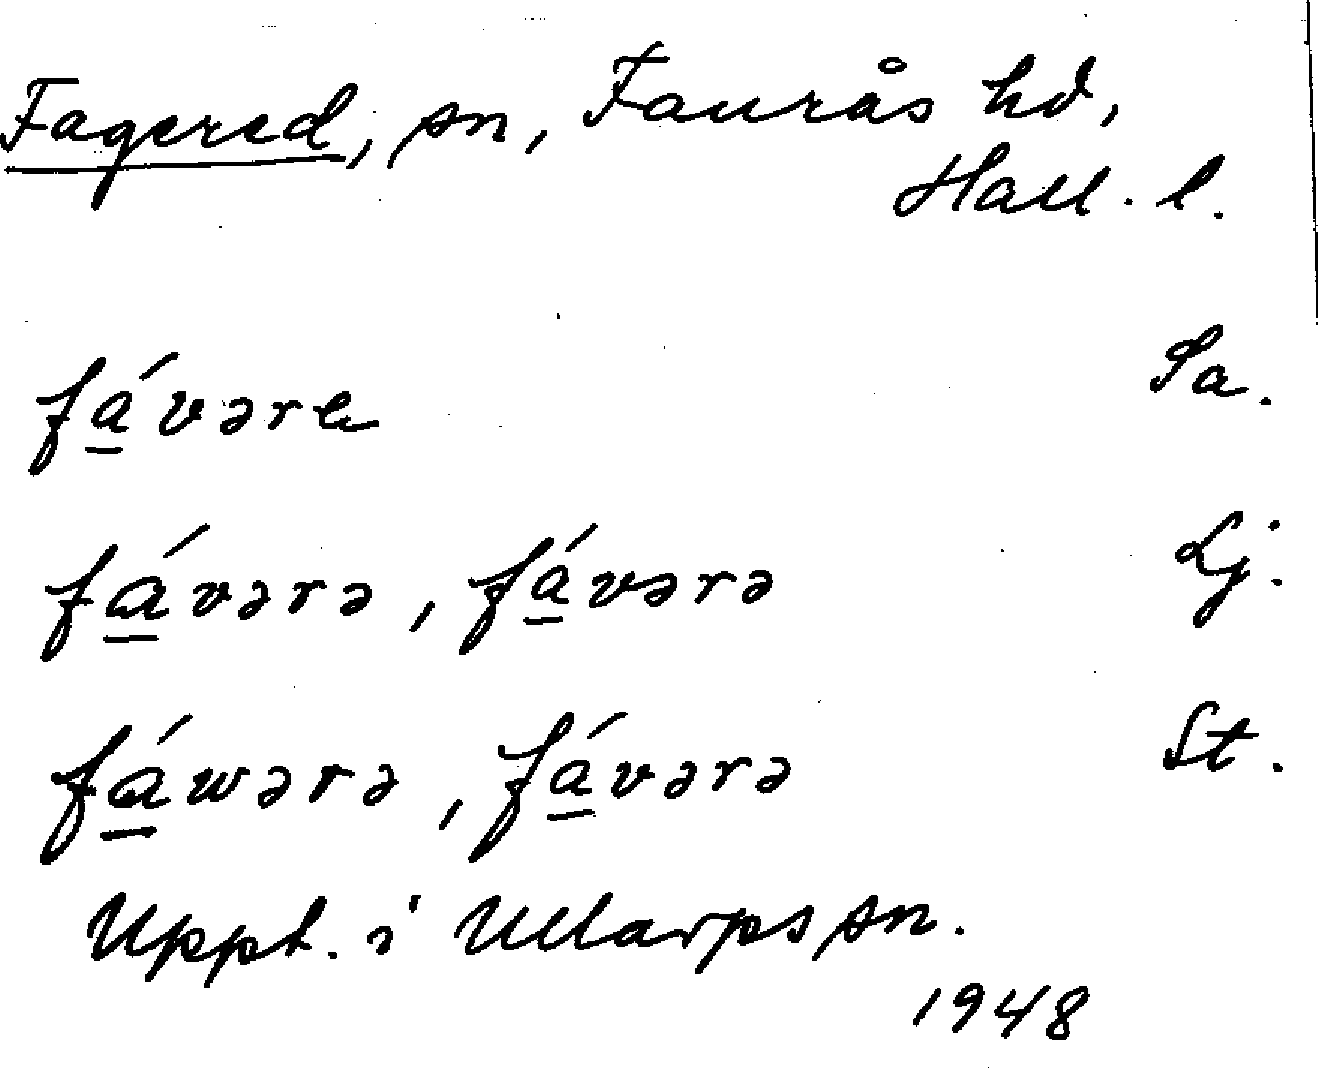 Fagered, sn, Faurås hd,
Hall. l.
fá̱vəre Sa.
fá̱vərə, fá̱vərə Lj.
fá̱wərə, fá̱vərə St.
Uppt. i Ullarps sn.
1948